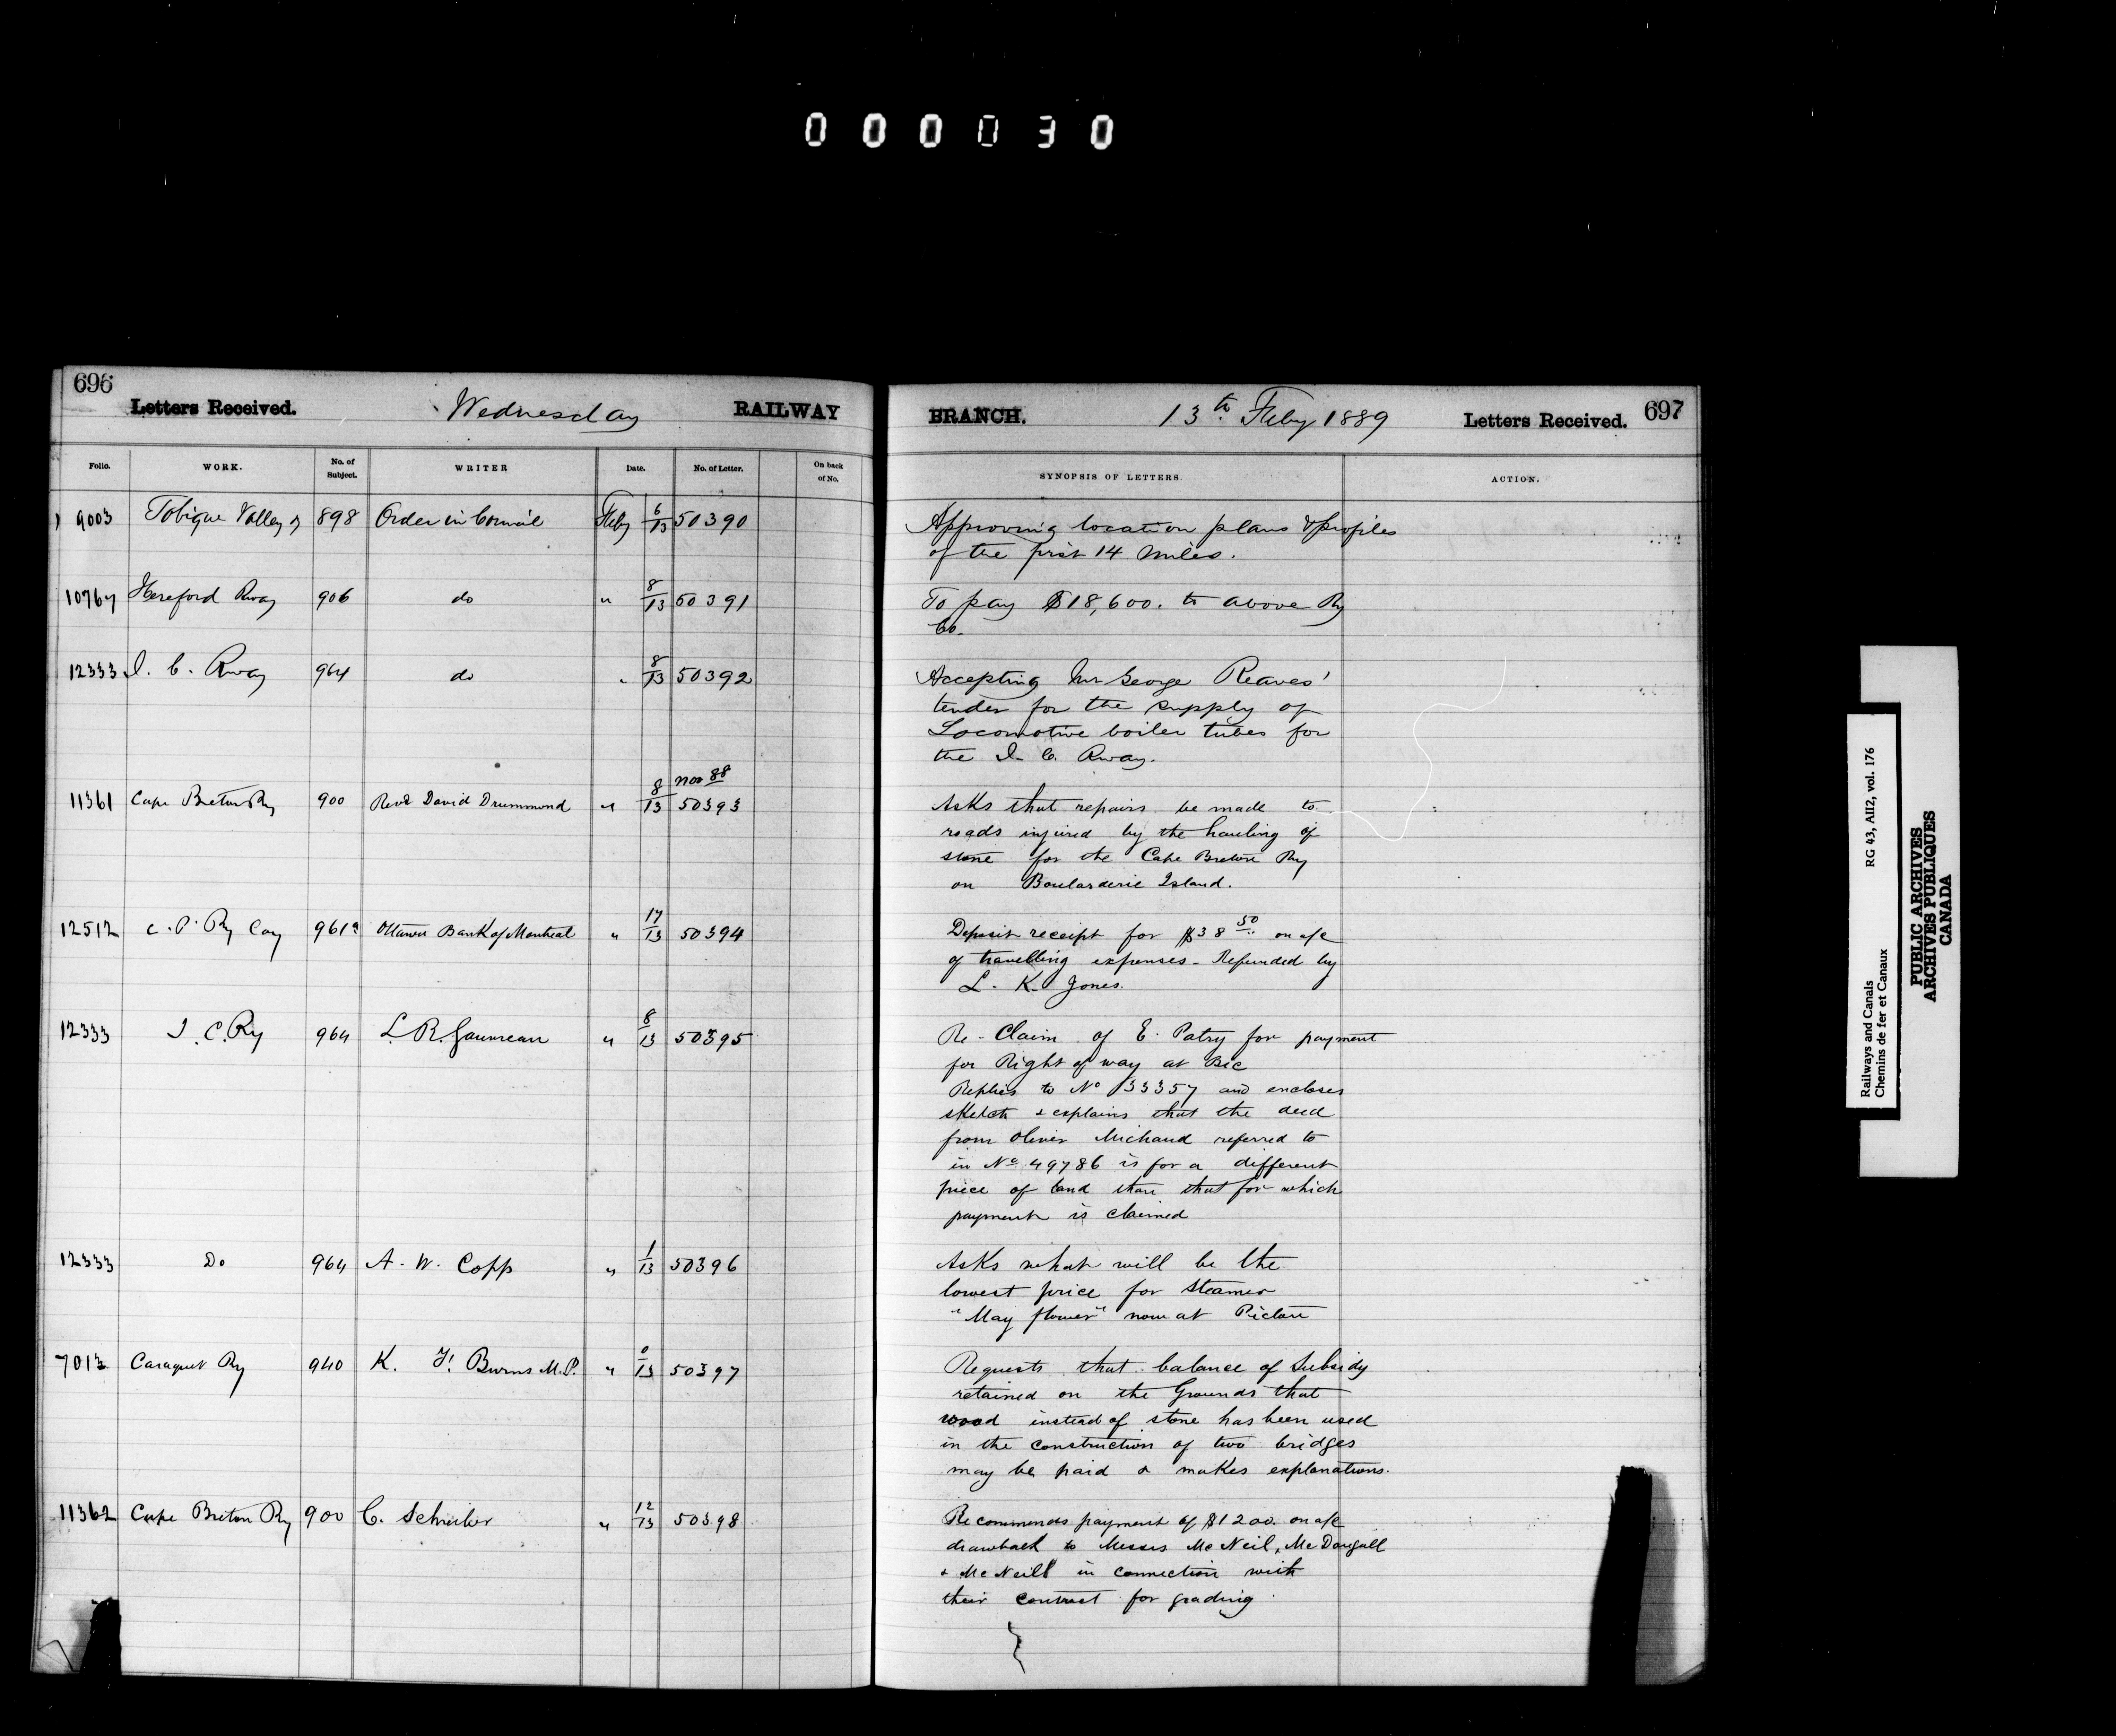 000030
696
Letters Received. Wednesday RAILWAY
Folio. WORK. No. of Subject. WRITER Date. No. of Letter. On back of No.
9003 Tobique Valley Ry 898 Order in Council Feby 6/13 50390
10767 Hereford Rway 906 do " 8/13 50391
12333 I. C. Rway 964 do " 8/13 50392
Nov 88
11361 Cape Breton Ry 900 Revd David Drummond " 8/13 50393
12512 C. P. Ry Coy 961a Ottawa Bank of Montreal " 17/13 50394
12333 I. C. Ry 964 L. R. Gauvreau " 8/13 50395
12333 Do 964 A. W. Copp " 1/13 50396
7012 Caraquet Ry 940 K. F. Burns M.P. " 0/13 50397
11362 Cape Breton Ry 900 C. Schreiber " 12/13 50398
BRANCH. 13th Feby 1889 Letters Received. 697
SYNOPSIS OF LETTERS. ACTION.
Approving location plans & profiles
of the first 14 miles.
To pay $18,600. to above Ry
Co.
Accepting Mr George Reaves'
tender for the supply of
Locomotive boiler tubes for
the I. C. Rway.
Asks that repairs be made to
roads injured by the hauling of
stone for the Cape Breton Ry
on Boularderie Island.
Deposit receipt for $38 50 on a/c
of travelling expenses - Refunded by
L. K. Jones.
Re - Claim of E. Patry for payment
for Right of way at Bic
Replies to No 33357 and encloses
sketch & explains that the deed
from Oliver Michaud referred to
in No 49786 is for a different
piece of land than that for which
payment is claimed
Asks what will be the
lowest price for steamer
"May flower" now at Pictou
Requests that balance of Subsidy
retained on the Grounds that
wood instead of stone has been used
in the construction of two bridges
may be paid & makes explanations.
Recommends payment of $1200. on a/c
drawback to Messrs McNeil, McDougall
& McNeill in connection with
their contract for grading
Railways and Canals RG 43, AII2, vol. 176
Chemins de fer et Canaux
PUBLIC ARCHIVES
ARCHIVES PUBLIQUES
CANADA